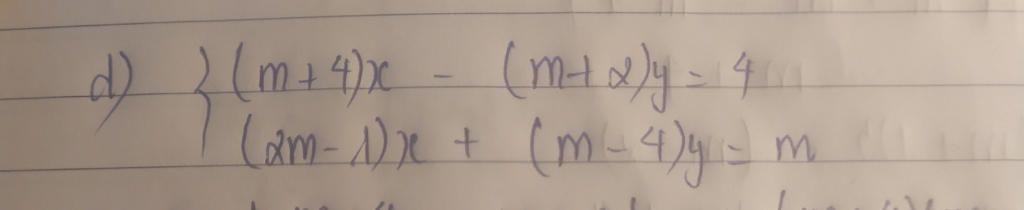 d) { (m+4)x - (m+2)y = 4
(2m-1)x + (m-4)y = m